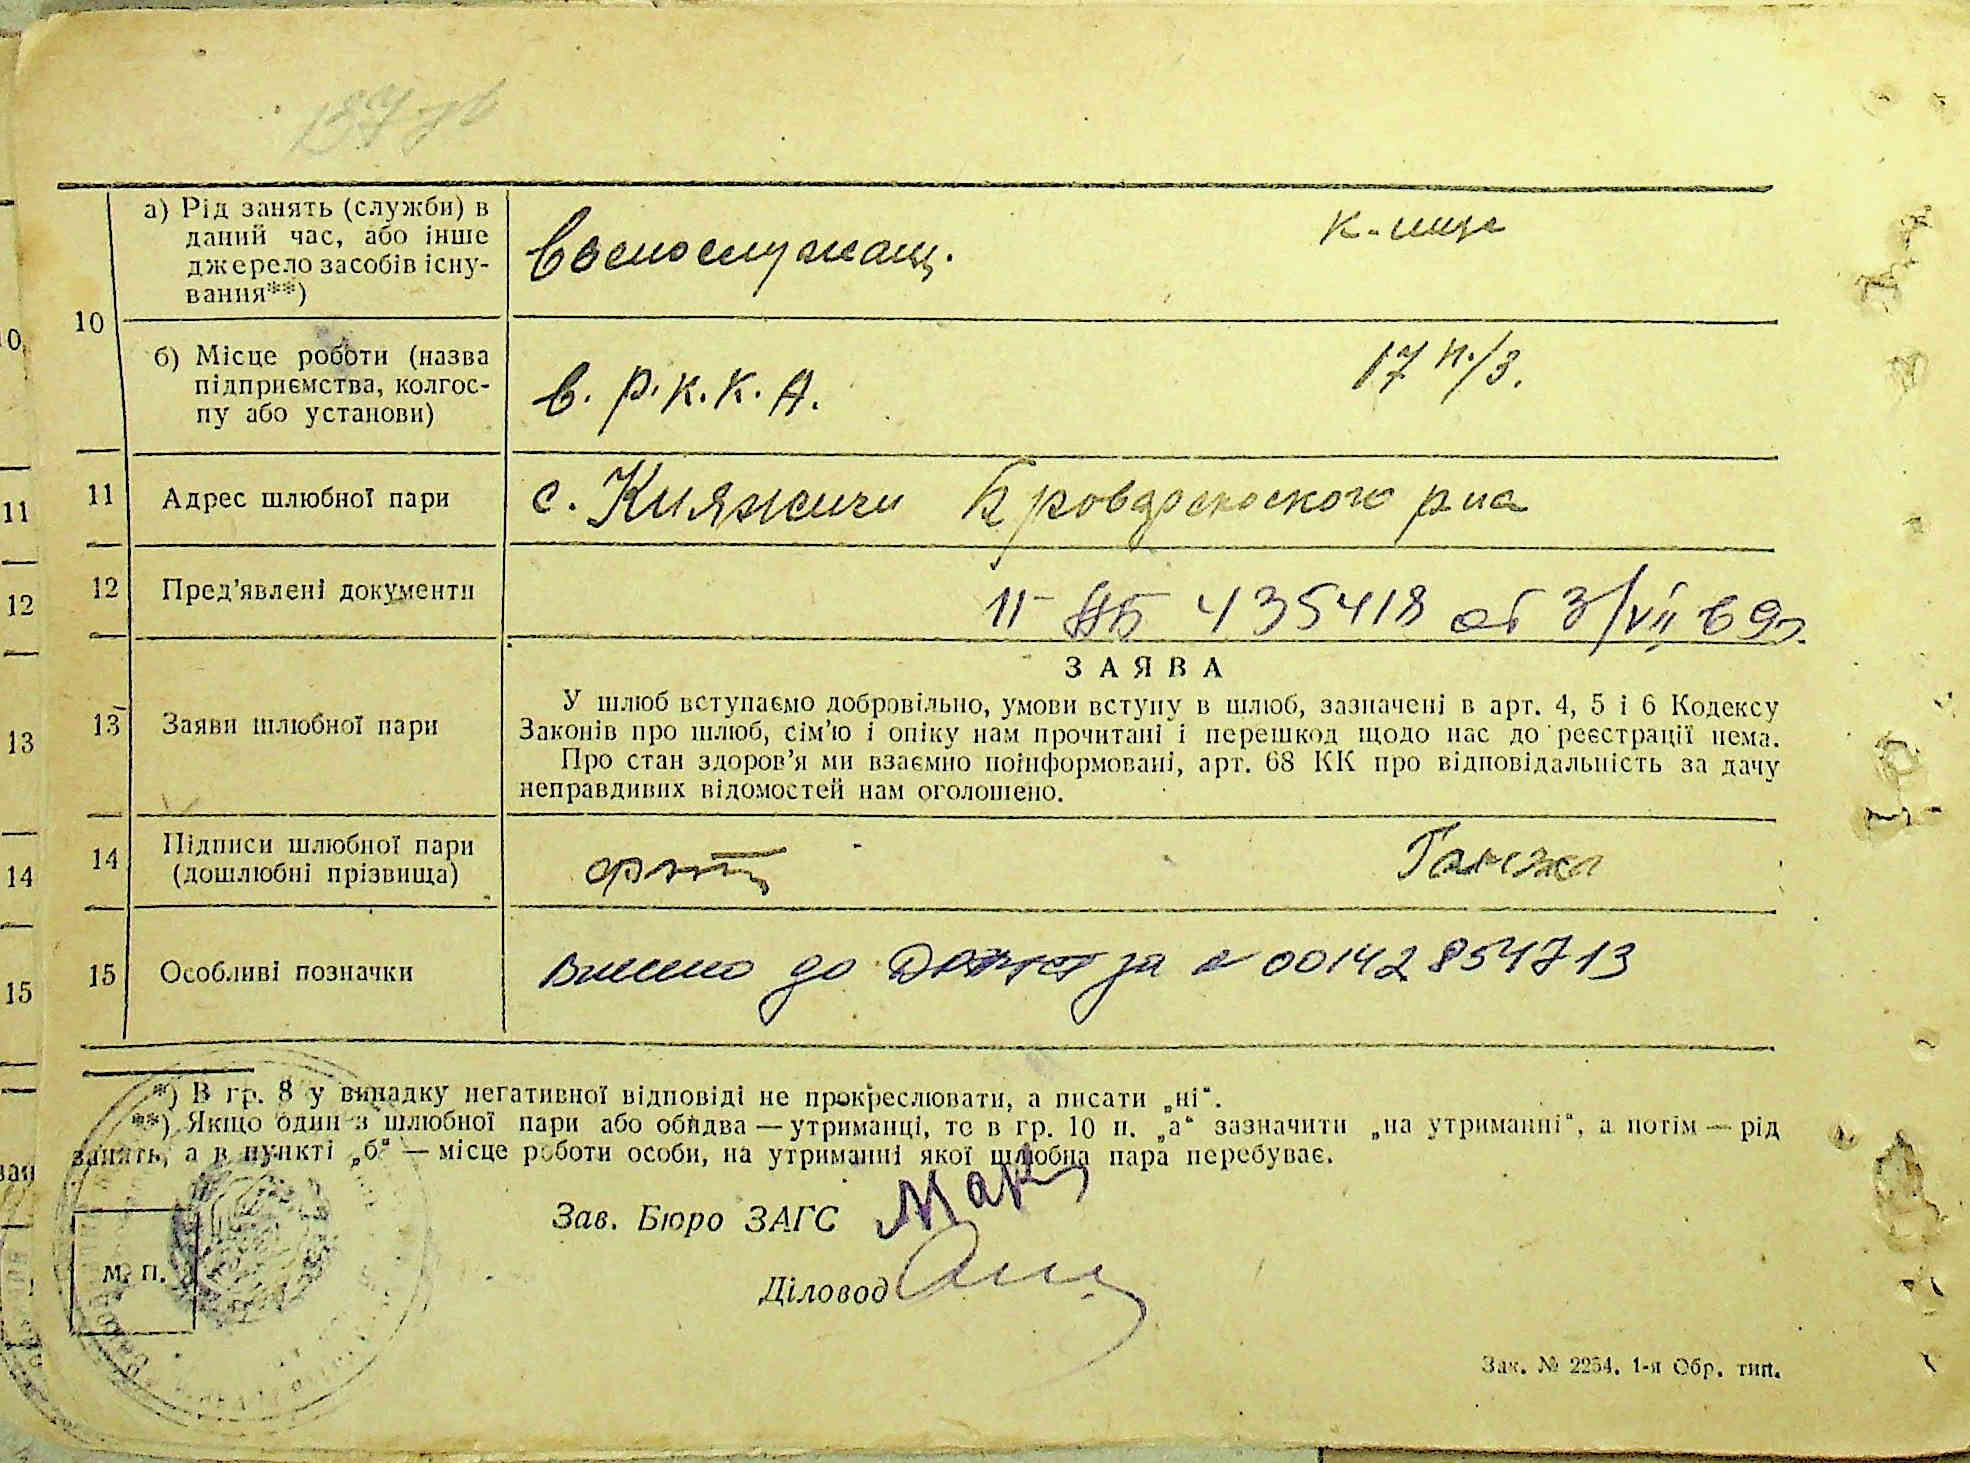 137 зв
10
а) Рід занять (служби) в
даний час, або інше
джерело засобів існу-
вання**)
воєнослужащ.
к-ница
б) Місце роботи (назва
підприємства, колгос-
пу або установи)
в. Р.К.К.А.
17 п./з.
11
Адрес шлюбної пари
с. Княжичи Броварского р-на
12
Пред'явлені документи
435418 от 3/VII 69г.
13
Заяви шлюбної пари
ЗАЯВА
У шлюб вступаємо добровільно, умови вступу в шлюб, зазначені в арт. 4, 5 і 6 Кодексу
Законів про шлюб, сім'ю і опіку нам прочитані і перешкод щодо нас до реєстрації нема.
Про стан здоров'я ми взаємно поінформовані, арт. 68 КК про відповідальність за дачу
неправдивих відомостей нам оголошено.
14
Підписи шлюбної пари
(дошлюбні прізвища)
Ганжа
15
Особливі позначки
внесено до за 00142854713
*) В гр. 8 у випадку негативної відповіді не прокреслювати, а писати „ні“.
**) Якщо один з шлюбної пари або обидва — утриманці, то в гр. 10 п. „а“ зазначити „на утриманні“, а потім — рід
занять, а в пункті „б“ — місце роботи особи, на утриманні якої шлюбна пара перебуває.
Зав. Бюро ЗАГС
Діловод
М. П.
Зак. № 2254. 1-я Обр. тип.
11
12
13
14
15